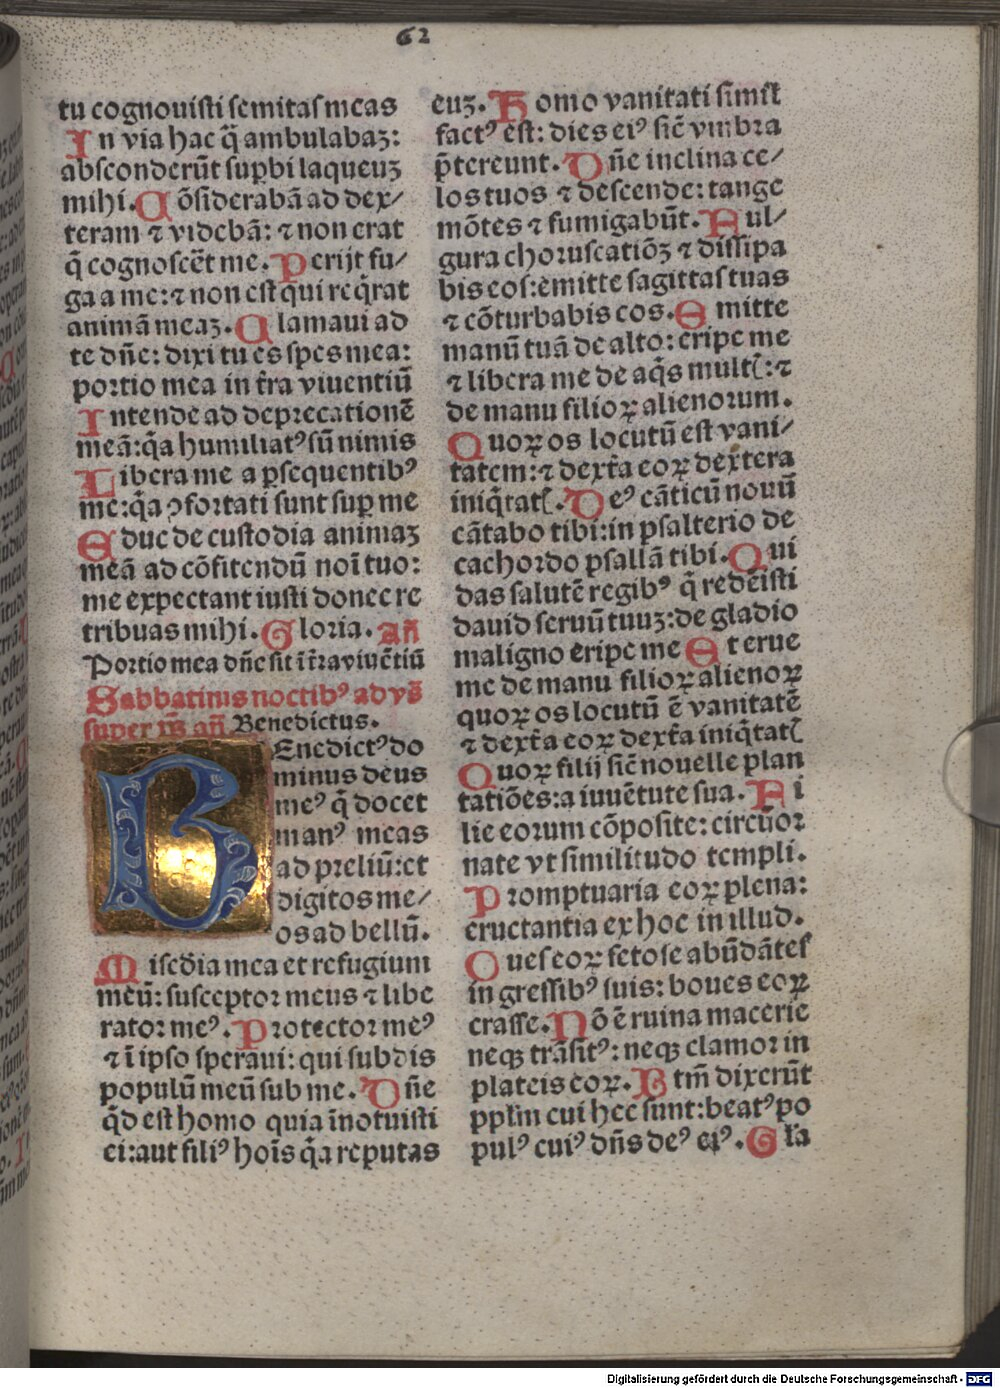 62
tu cognouisti semitas meas
In via hac q̄ ambulabaꝫ:
absconderūt supbi laqueuꝫ
mihi. Cōsiderabā ad dex/
teram ⁊ videbā: ⁊ non erat
q̄ cognoscēt me. Perijt fu/
ga a me: ⁊ non est qui reqͥrat
animā meaꝫ. Clamaui ad
te dn̄e: dixi tu es spes mea:
portio mea in tr̄a viuentiū
Intende ad deprecationē
meā: qͥa humiliatꝰ sū nimis
Libera me a ꝑsequentibꝰ
me: qͥa ꝯfortati sunt suꝑ me
Educ de custodia animaꝫ
meā ad cōfitendū noī tuo:
me expectant iusti donec re
tribuas mihi. Gloria. Añ
Portio mea dn̄e sit ī tr̄a viuētiū
Sabbatinis noctibꝰ ad vs̄
super ps̄ añ. Benedictus.
BEnedictꝰ do
minus deus
meꝰ q̄ docet
manꝰ meas
ad preliū: et
digitos me/
os ad bellū.
Miscd̄ia mea et refugium
meū: susceptor meus ⁊ libe
rator meꝰ. Protector meꝰ
⁊ ī ipso speraui: qui subdis
populū meū sub me. Dn̄e
qͥd est homo quia īnotuisti
ei: aut filiꝰ hoīs qͥa reputas
euꝫ. Homo vanitati simił
factꝰ est: dies eiꝰ sic̄ vmbra
p̄tereunt. Dn̄e inclina ce/
los tuos ⁊ descende: tange
mōtes ⁊ fumigabūt. Ful/
gura choruscatiōꝫ ⁊ dissipa
bis eos: emitte sagittas tuas
⁊ cōturbabis eos. Emitte
manū tuā de alto: eripe me
⁊ libera me de aqͥs multꝭ: ⁊
de manu filioꝝ alienorum.
Quoꝝ os locutū est vani/
tatem: ⁊ dextr̄a eoꝝ dextera
iniqͥtatꝭ. Deꝰ cāticū nouū
cātabo tibi: in psalterio de
cachordo psallā tibi. Qui
das salutē regibꝰ q̄ redēisti
dauid seruū tuuꝫ: de gladio
maligno eripe me Et erue
me de manu filioꝝ alienoꝝ
quoꝝ os locutū ē vanitatē
⁊ dextr̄a eoꝝ dextr̄a iniqͥtatꝭ
Quoꝝ filij sic̄ nouelle plan
tatiōes: a iuuētute sua. Fi
lie eorum cōposite: circūor
nate vt similitudo templi.
Promptuaria eoꝝ plena:
eructantia ex hoc in illud.
Oues eoꝝ fetose abūdātes
in gressibꝰ suis: boues eoꝝ
crasse. Nō ē ruina macerie
neqꝫ trāsitꝰ: neqꝫ clamor in
plateis eoꝝ. Btm̄ dixerūt
ppl̄m cui hec sunt: beatꝰ po
pulꝰ cuiꝰ dn̄s deꝰ eiꝰ. Gl̄a
Digitalisierung gefördert durch die Deutsche Forschungsgemeinschaft - DFG